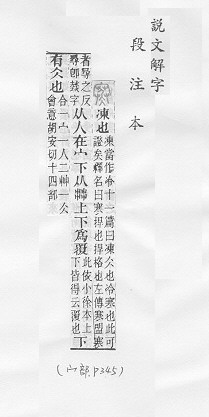 說文解字
段注本
凍也凍當作冷十一篇曰凍仌也冷寒也此可
證矣釋名曰寒捍也捍格也左傳寒盟寒
者尋之反
尋卽燅字从人在宀下从茻上下爲覆此依小徐本上
下皆得云覆也下
有仌也合一宀一人二艸一仌
會意胡安切十四部
(宀部P345)